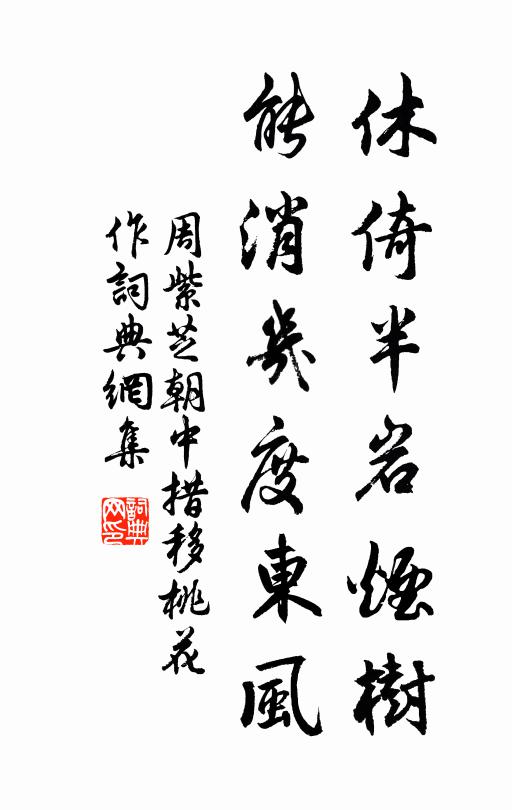 休倚半岩煙樹
能消幾度東風
周紫芝朝中措移桃花
作詞典網集
詞典
网印